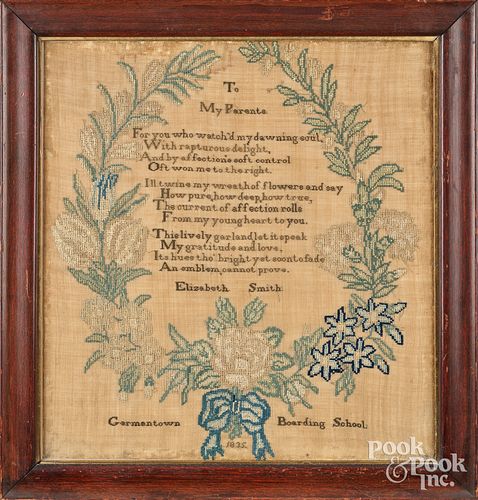 To
My Parents
For you who watch'd my dawning soul,
With rapturous delight,
And by affection's soft control
Oft won me to the right.
Ill twine my wreath of flowers and say
How pure, how deep, how true,
The current of affection rolls
From my young heart to you.
This lively garland, let it speak
My gratitude and love,
Its hues tho' bright yet soon to fade
An emblem, cannot prove.
Elizabeth Smith
Germantown Boarding School.
1835.
POOK
& POOK
INC.